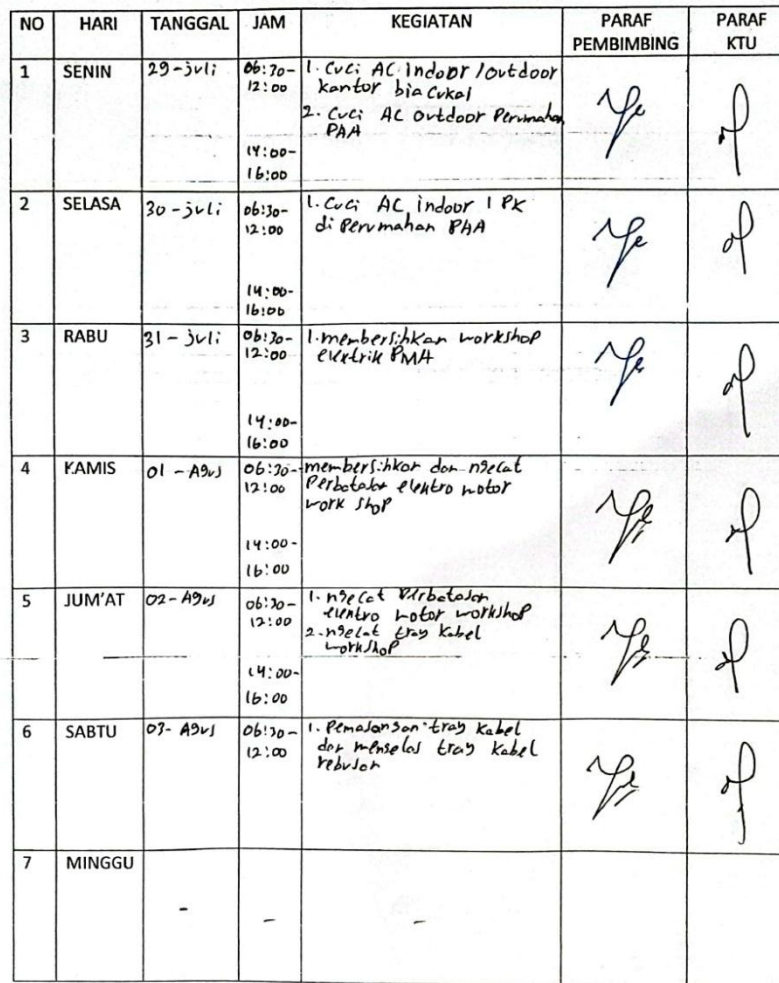 NO HARI TANGGAL JAM KEGIATAN PARAF PEMBIMBING PARAF KTU
1 SENIN 29-juli 06:30-12:00 1. Cuci AC indoor / outdoor
kantor bia cukai
2. Cuci AC outdoor Perumahan
PAA
14:00-
16:00
2 SELASA 30-juli 06:30-12:00 1. Cuci AC indoor 1 PK
di Perumahan PAA
14:00-
16:00
3 RABU 31-juli 06:30-12:00 1. membersihkan workshop
elektrik
14:00-
16:00
4 KAMIS 01-Agus 06:30-12:00 membersihkan dan ngecat
Perbatasan elektro motor
work shop
14:00-
16:00
5 JUM'AT 02-Agus 06:30-12:00 1. ngecat Perbatasan
elektro motor workshop
2. ngecat tray kabel
workshop
14:00-
16:00
6 SABTU 03-Agus 06:30-12:00 1. Pemasangan tray kabel
dan mengelas tray kabel
rebusan
7 MINGGU - - -